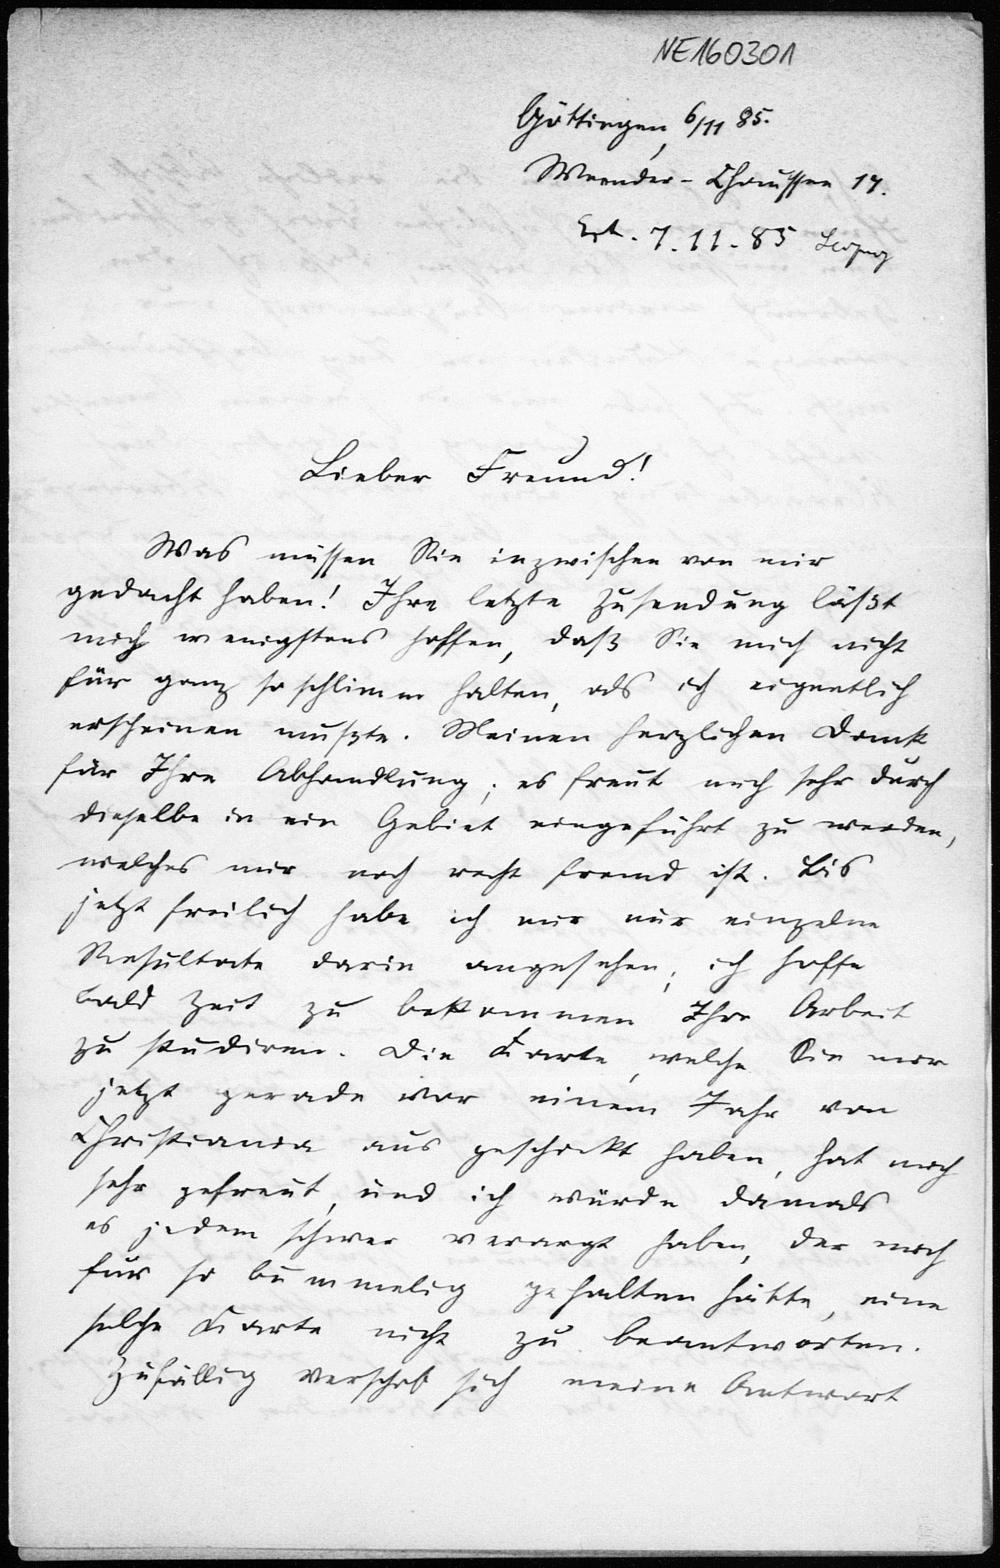 NE160301
Göttingen, 6/11 85.
Weender-Chaussee 17.
Erh. 7.11.85 Leipzig
Lieber Freund!
Was müssen Sie inzwischen von mir
gedacht haben! Ihre letzte Zusendung läßt
mich wenigstens hoffen, daß Sie mich nicht
für ganz so schlimm halten, als ich eigentlich
erscheinen mußte. Meinen herzlichen Dank
für Ihre Abhandlung; es freut mich sehr durch
dieselbe in ein Gebiet eingeführt zu werden,
welches mir noch recht fremd ist. Bis
jetzt freilich habe ich mir nur einzelne
Resultate darin angesehen; ich hoffe
bald Zeit zu bekommen Ihre Arbeit
zu studiren. Die Karte, welche Sie mir
jetzt gerade vor einem Jahr von
Christiania aus geschickt haben, hat mich
sehr gefreut, und ich würde damals
es jedem schwer verargt haben, der mich
für so bummelig gehalten hätte, eine
solche Karte nicht zu beantworten.
Zufällig verschob sich meine Antwort